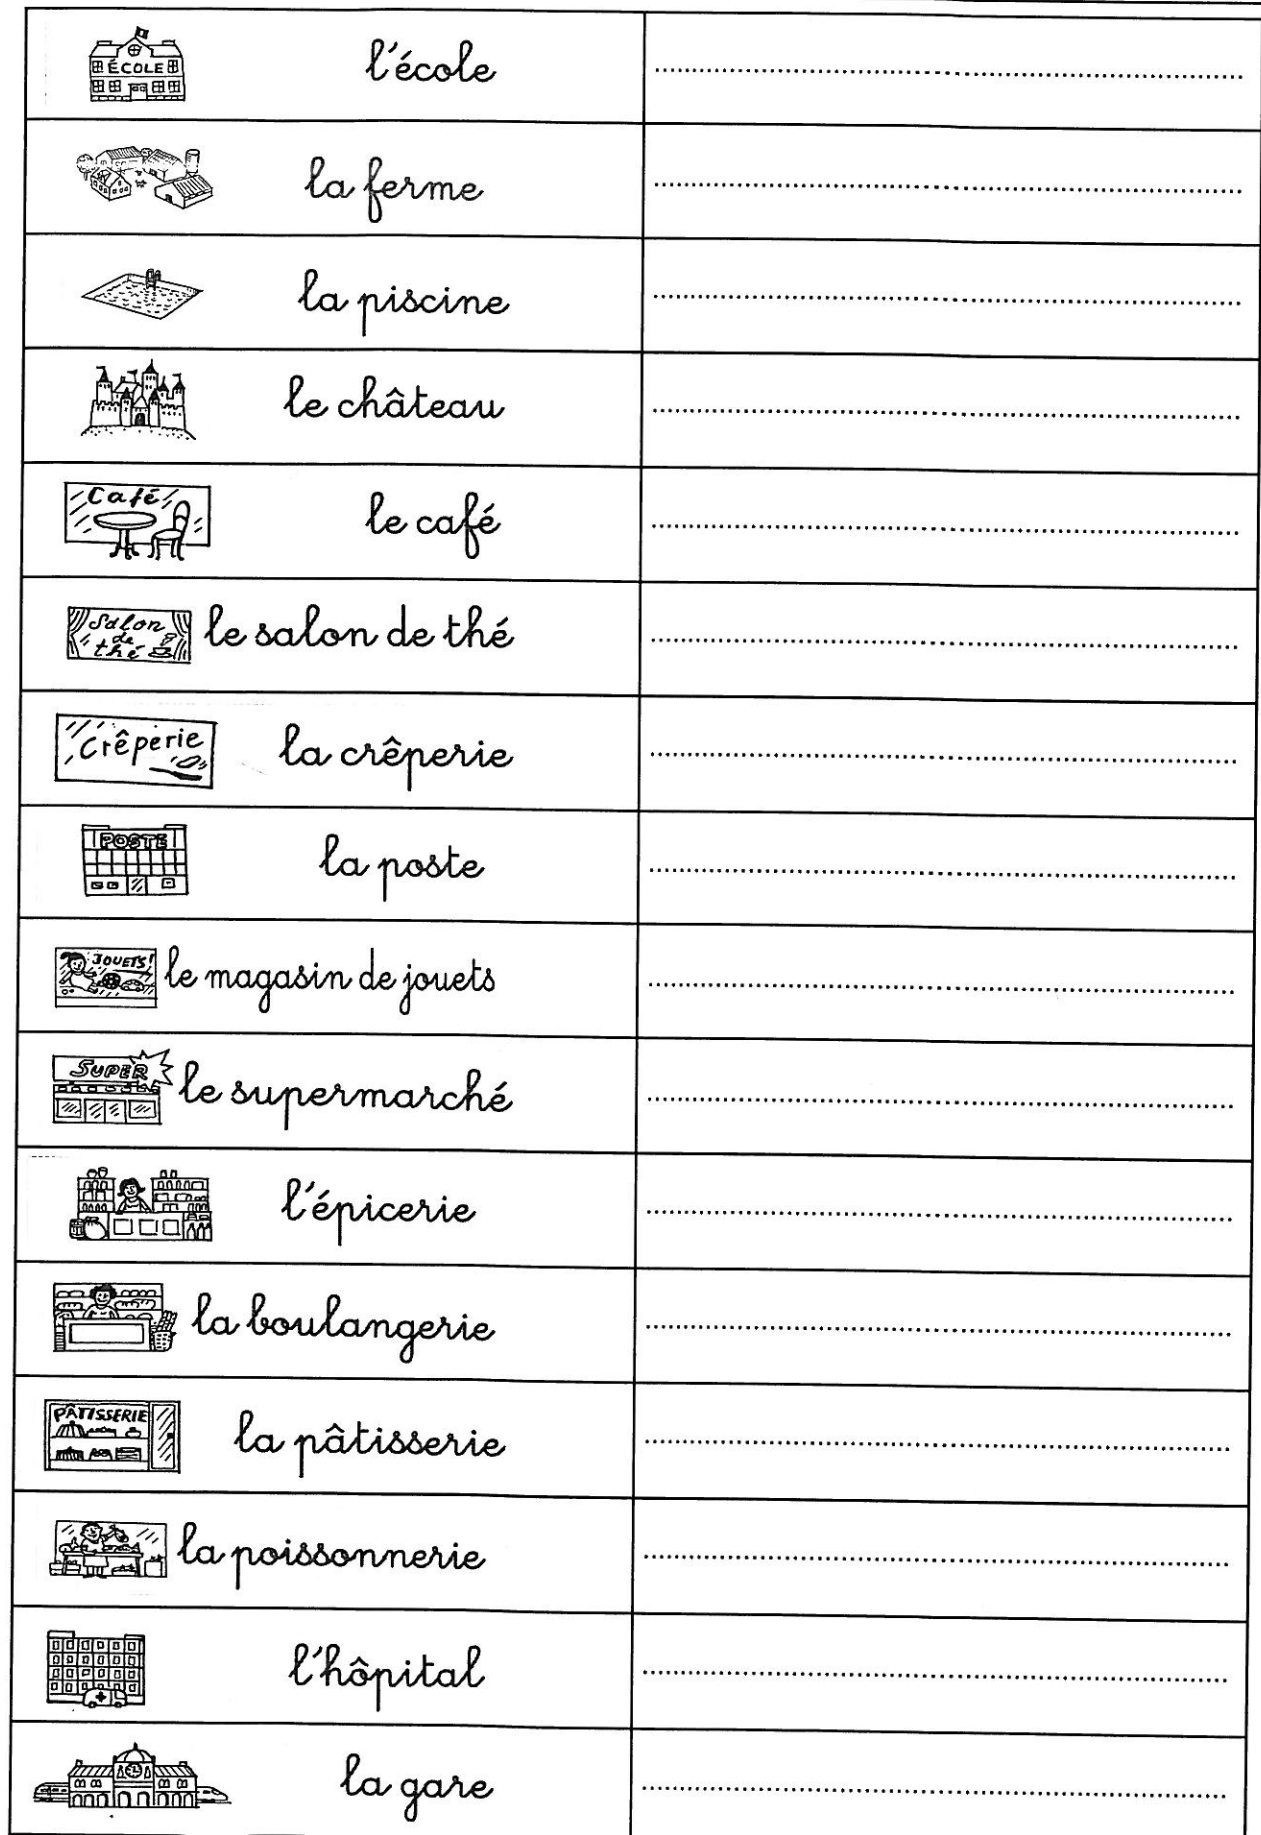 ÉCOLE l'école
la ferme
la piscine
le château
Café le café
Salon
de
thé
le salon de thé
Crêperie la crêperie
POSTE la poste
JOUETS! le magasin de jouets
SUPER le supermarché
l'épicerie
la boulangerie
PÂTISSERIE la pâtisserie
la poissonnerie
l'hôpital
la gare